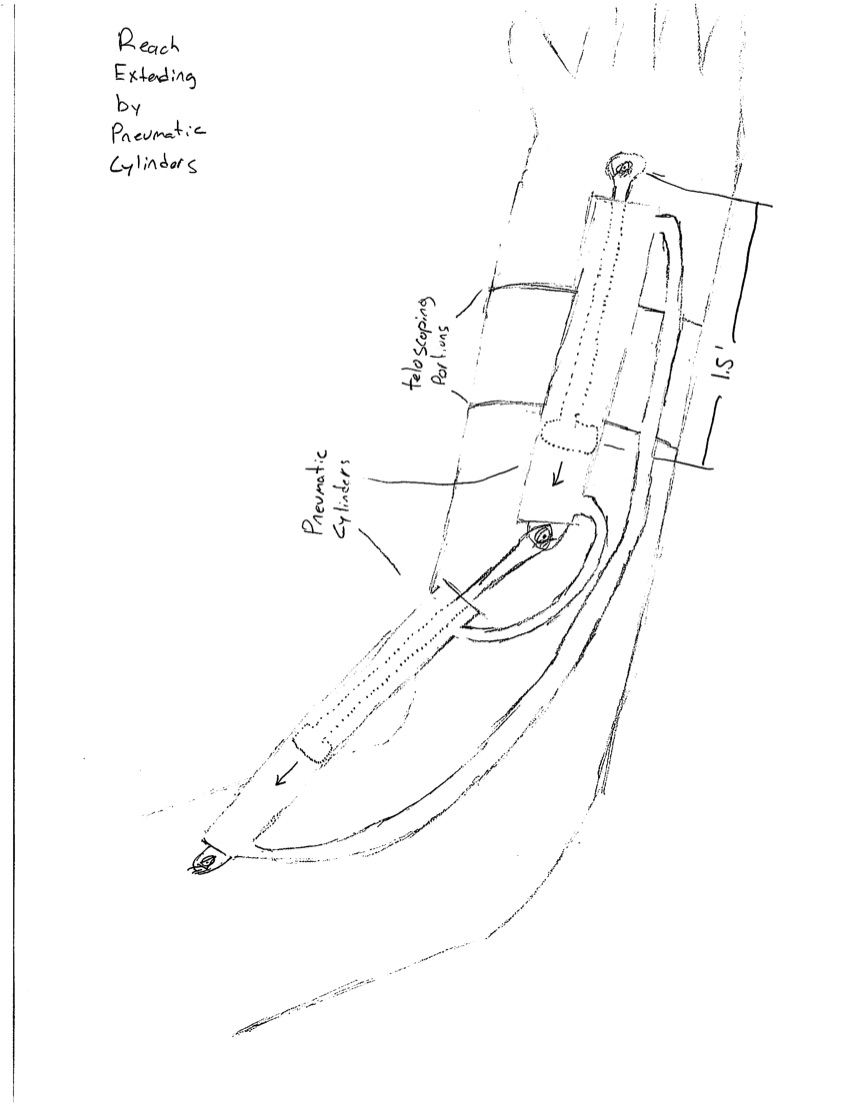 Reach
Extending
by
Pneumatic
Cylinders
teloscoping
Portions
1.5'
Pneumatic
Cylinders